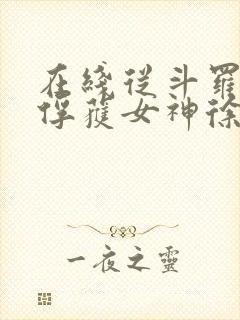 在綫從斗羅
俘獲女神徐
一夜之靈